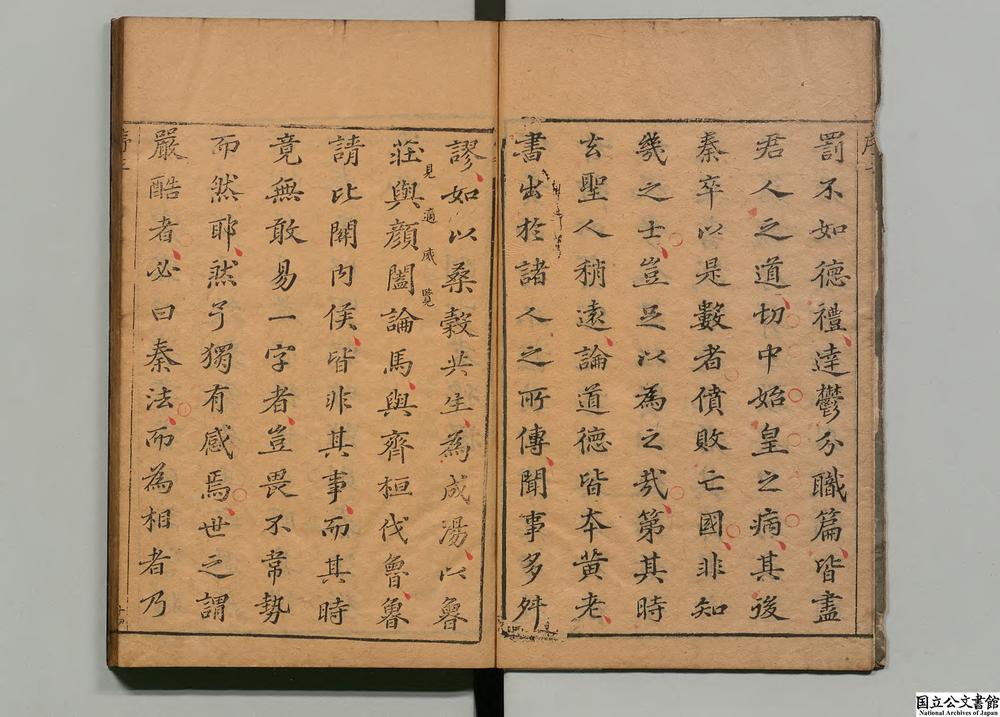 罰不如德禮達鬱分職篇皆盡
君人之道切中始皇之病其後
秦卒以是數者僨敗亡國非知
幾之士豈足以為之哉第其時
去聖人稍遠論道德皆本黄老
書出於諸人之所傳聞事多舛
謬如以桑榖共生為成湯以魯
莊與顔闔論馬與齊桓伐魯魯
見適威覽
請比關內侯皆非其事而其時
竟無敢易一字者豈畏不韋勢
而然耶然予獨有感焉世之謂
嚴酷者必曰秦法而為相者乃
国立公文書館
National Archives of Japan